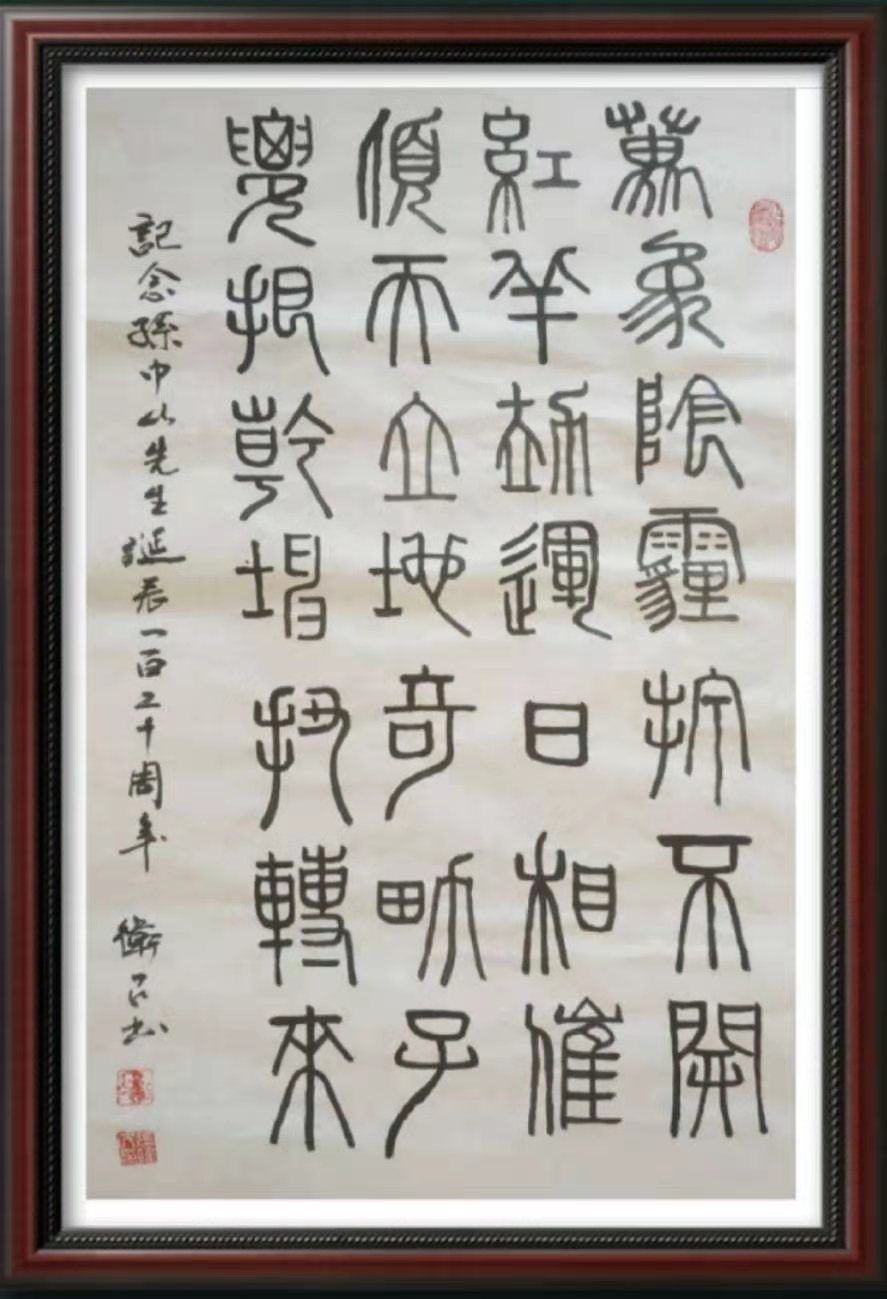 萬象陰霾打不開
紅羊劫運日相催
頂天立地奇男子
要把乾坤扭轉來
記念孫中山先生誕辰一百五十周年 衛石书